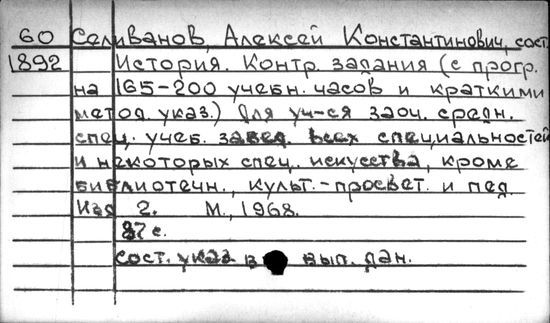 60 Селиванов, Алексей Константинович, сост.
1892 История. Контр. задания (с прогр.
на 165-200 учебн. часов и краткими
метод. указ.) Для уч-ся заоч. средн.
спец. учеб. завед. всех специальностей
и некоторых спец. искусства, кроме
библиотечн., культ.-просвет. и пед.
Изд. 2. М., 1968.
87 с.
сост. указ в вып. дан.